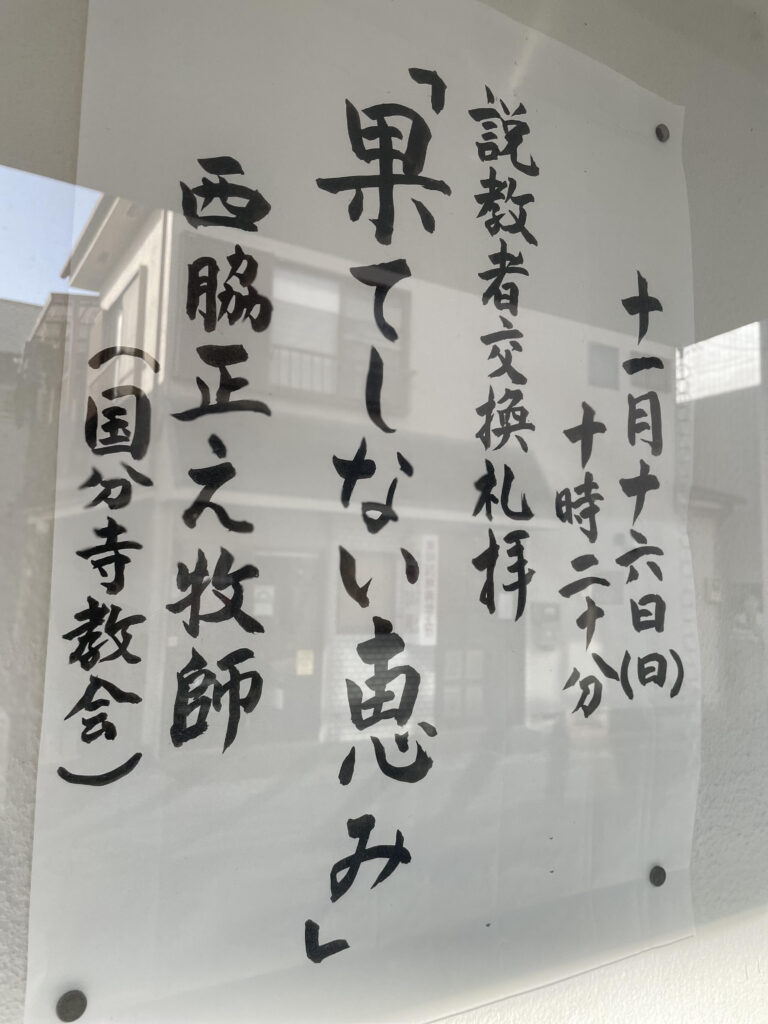 十一月十六日(日)
十時二十分
説教者交換礼拝
「果てしない恵み」
西脇正之牧師
(国分寺教会)